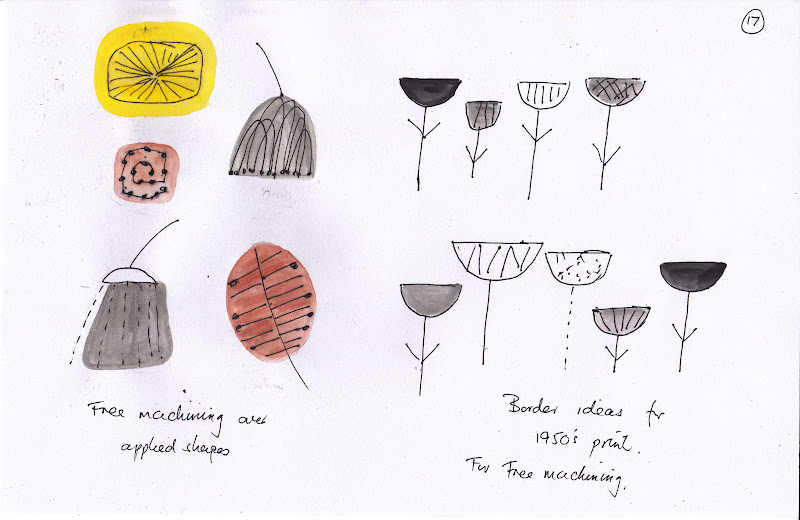 17
Free machining over
applied shapes
Border ideas for
1950's print.
For Free machining.